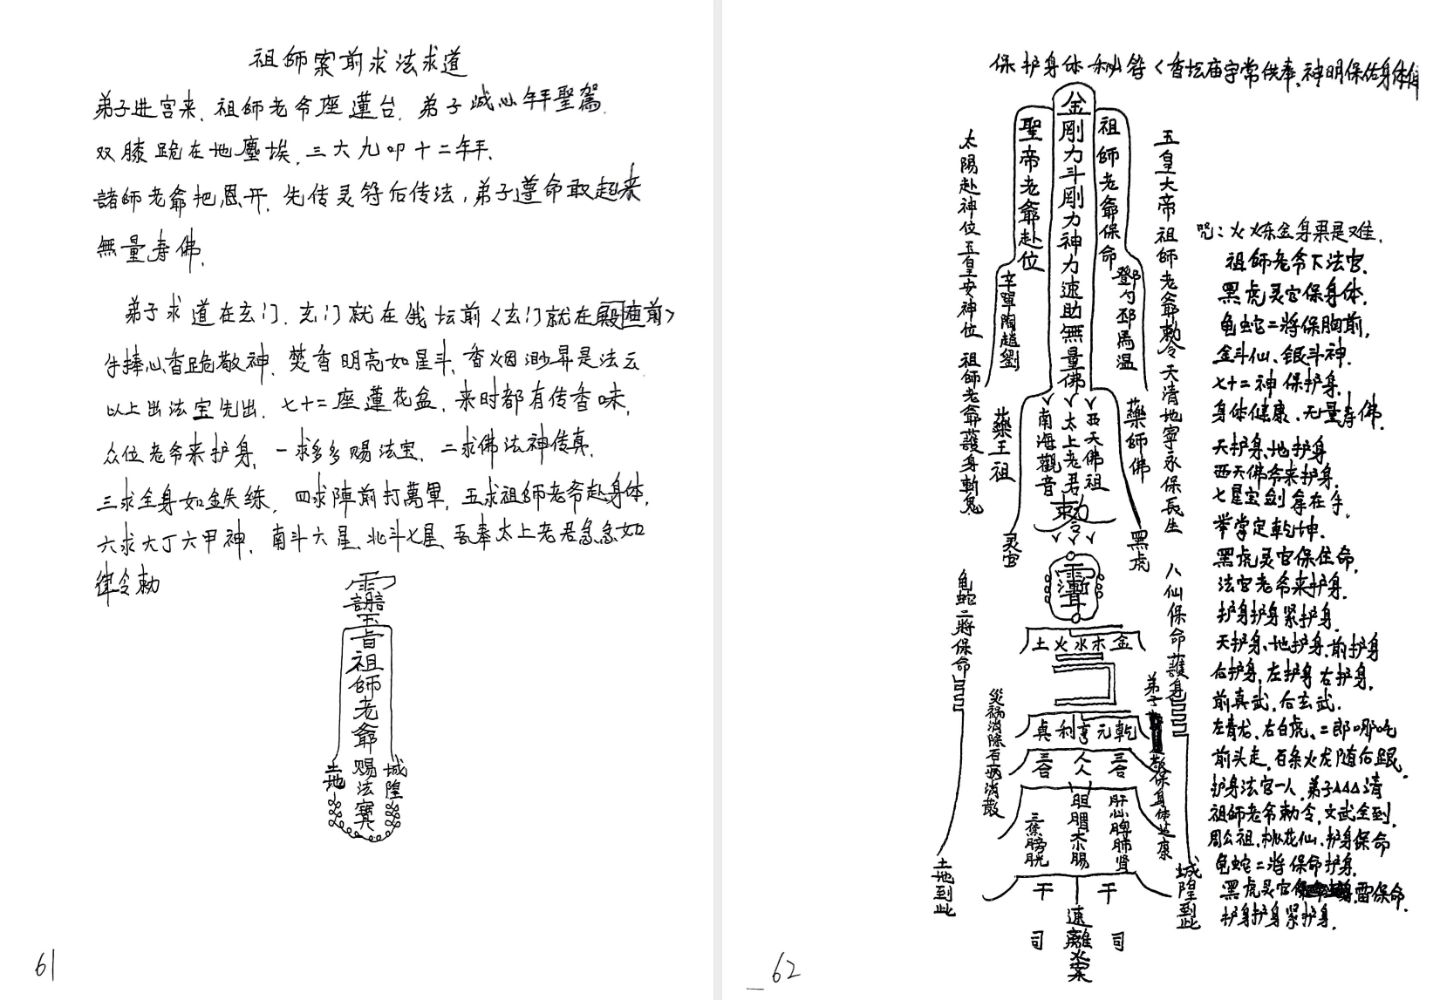 祖師案前求法求道
弟子进宫来，祖師老爷座蓮台，弟子诚心拜聖駕
双膝跪在地塵埃，三六九叩十二拜，
諸師老爺把恩开，先传灵符后传法，弟子遵命敢起来
無量寿佛，
弟子求道在玄门，玄门就在坛前<玄门就在殿座前>
手捧心香跪敬神，焚香明亮如星斗，香烟渺昇是法云
以上出法宝先出，七十二座蓮花盆，来时都有传香味，
众位老爷来护身，一求多多赐法宝，二求佛法神传真，
三求全身如金失练，四求陣前打萬軍，五求祖師老爷赴身体，
六求六丁六甲神，南斗六星、北斗七星、吾奉太上老君急急如
律令勅
玉旨祖師老爺赐法寶
土地
城隍
61
保护身体秘符<香坛庙宇常供奉，神明保佑身体
金剛力斗剛力神力速助無量佛
聖帝老爺赴位
祖師老爺保命
太陽赴神位五皇安神位 祖師老爺護身斬鬼
五皇大帝祖師老爺勅令天清地寧永保長生
辛單陶趙劉
鄧勺邳馬温
藥王祖
藥師佛
南海觀音
太上老君
西天佛祖
勅令
灵官
黑虎
龟蛇二將保命
八仙保命護身
土火水木金
災禍消除百病消散
真利亨元乾
三台
人人
三台
三焦膀胱
胆胃大小腸
肝心脾肺肾
土地到此
城隍到此
干
干
司
司
速離
咒：火炼金身果是难，
祖師老爷下法官，
黑虎灵官保身体，
龟蛇二將保胸前，
金斗仙、银斗神，
七十二神保护身，
身体健康、无量寿佛，
天护身、地护身
西天佛爷来护身，
七星宝剑拿在手，
举掌定乾坤，
黑虎灵官保住命，
法官老爷来护身，
护身护身紧护身，
天护身、地护身、前护身
后护身、左护身右护身，
前真武、后玄武，
左青龙、右白虎、二郎哪吒
前头走，百条火龙随后跟，
护身法官一人，弟子△△△清
祖師老爷勅令，文武全到，
周公祖、桃花仙、护身保命
龟蛇二將保命护身，
黑虎灵官雷保命，
护身护身紧护身，
62